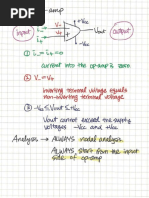 -amp
+Vcc
input
i-
V-
i+
V+
Vout
output
-Vcc
① i- = i+ = 0
current into the op-amp is zero
② V- = V+
inverting terminal voltage equals
non-inverting terminal voltage
③ -Vcc ≤ Vout ≤ +Vcc
Vout cannot exceed the supply
voltages -Vcc and +Vcc
Analysis → ALWAYS nodal analysis.
ALWAYS start from the input
side of op-amp